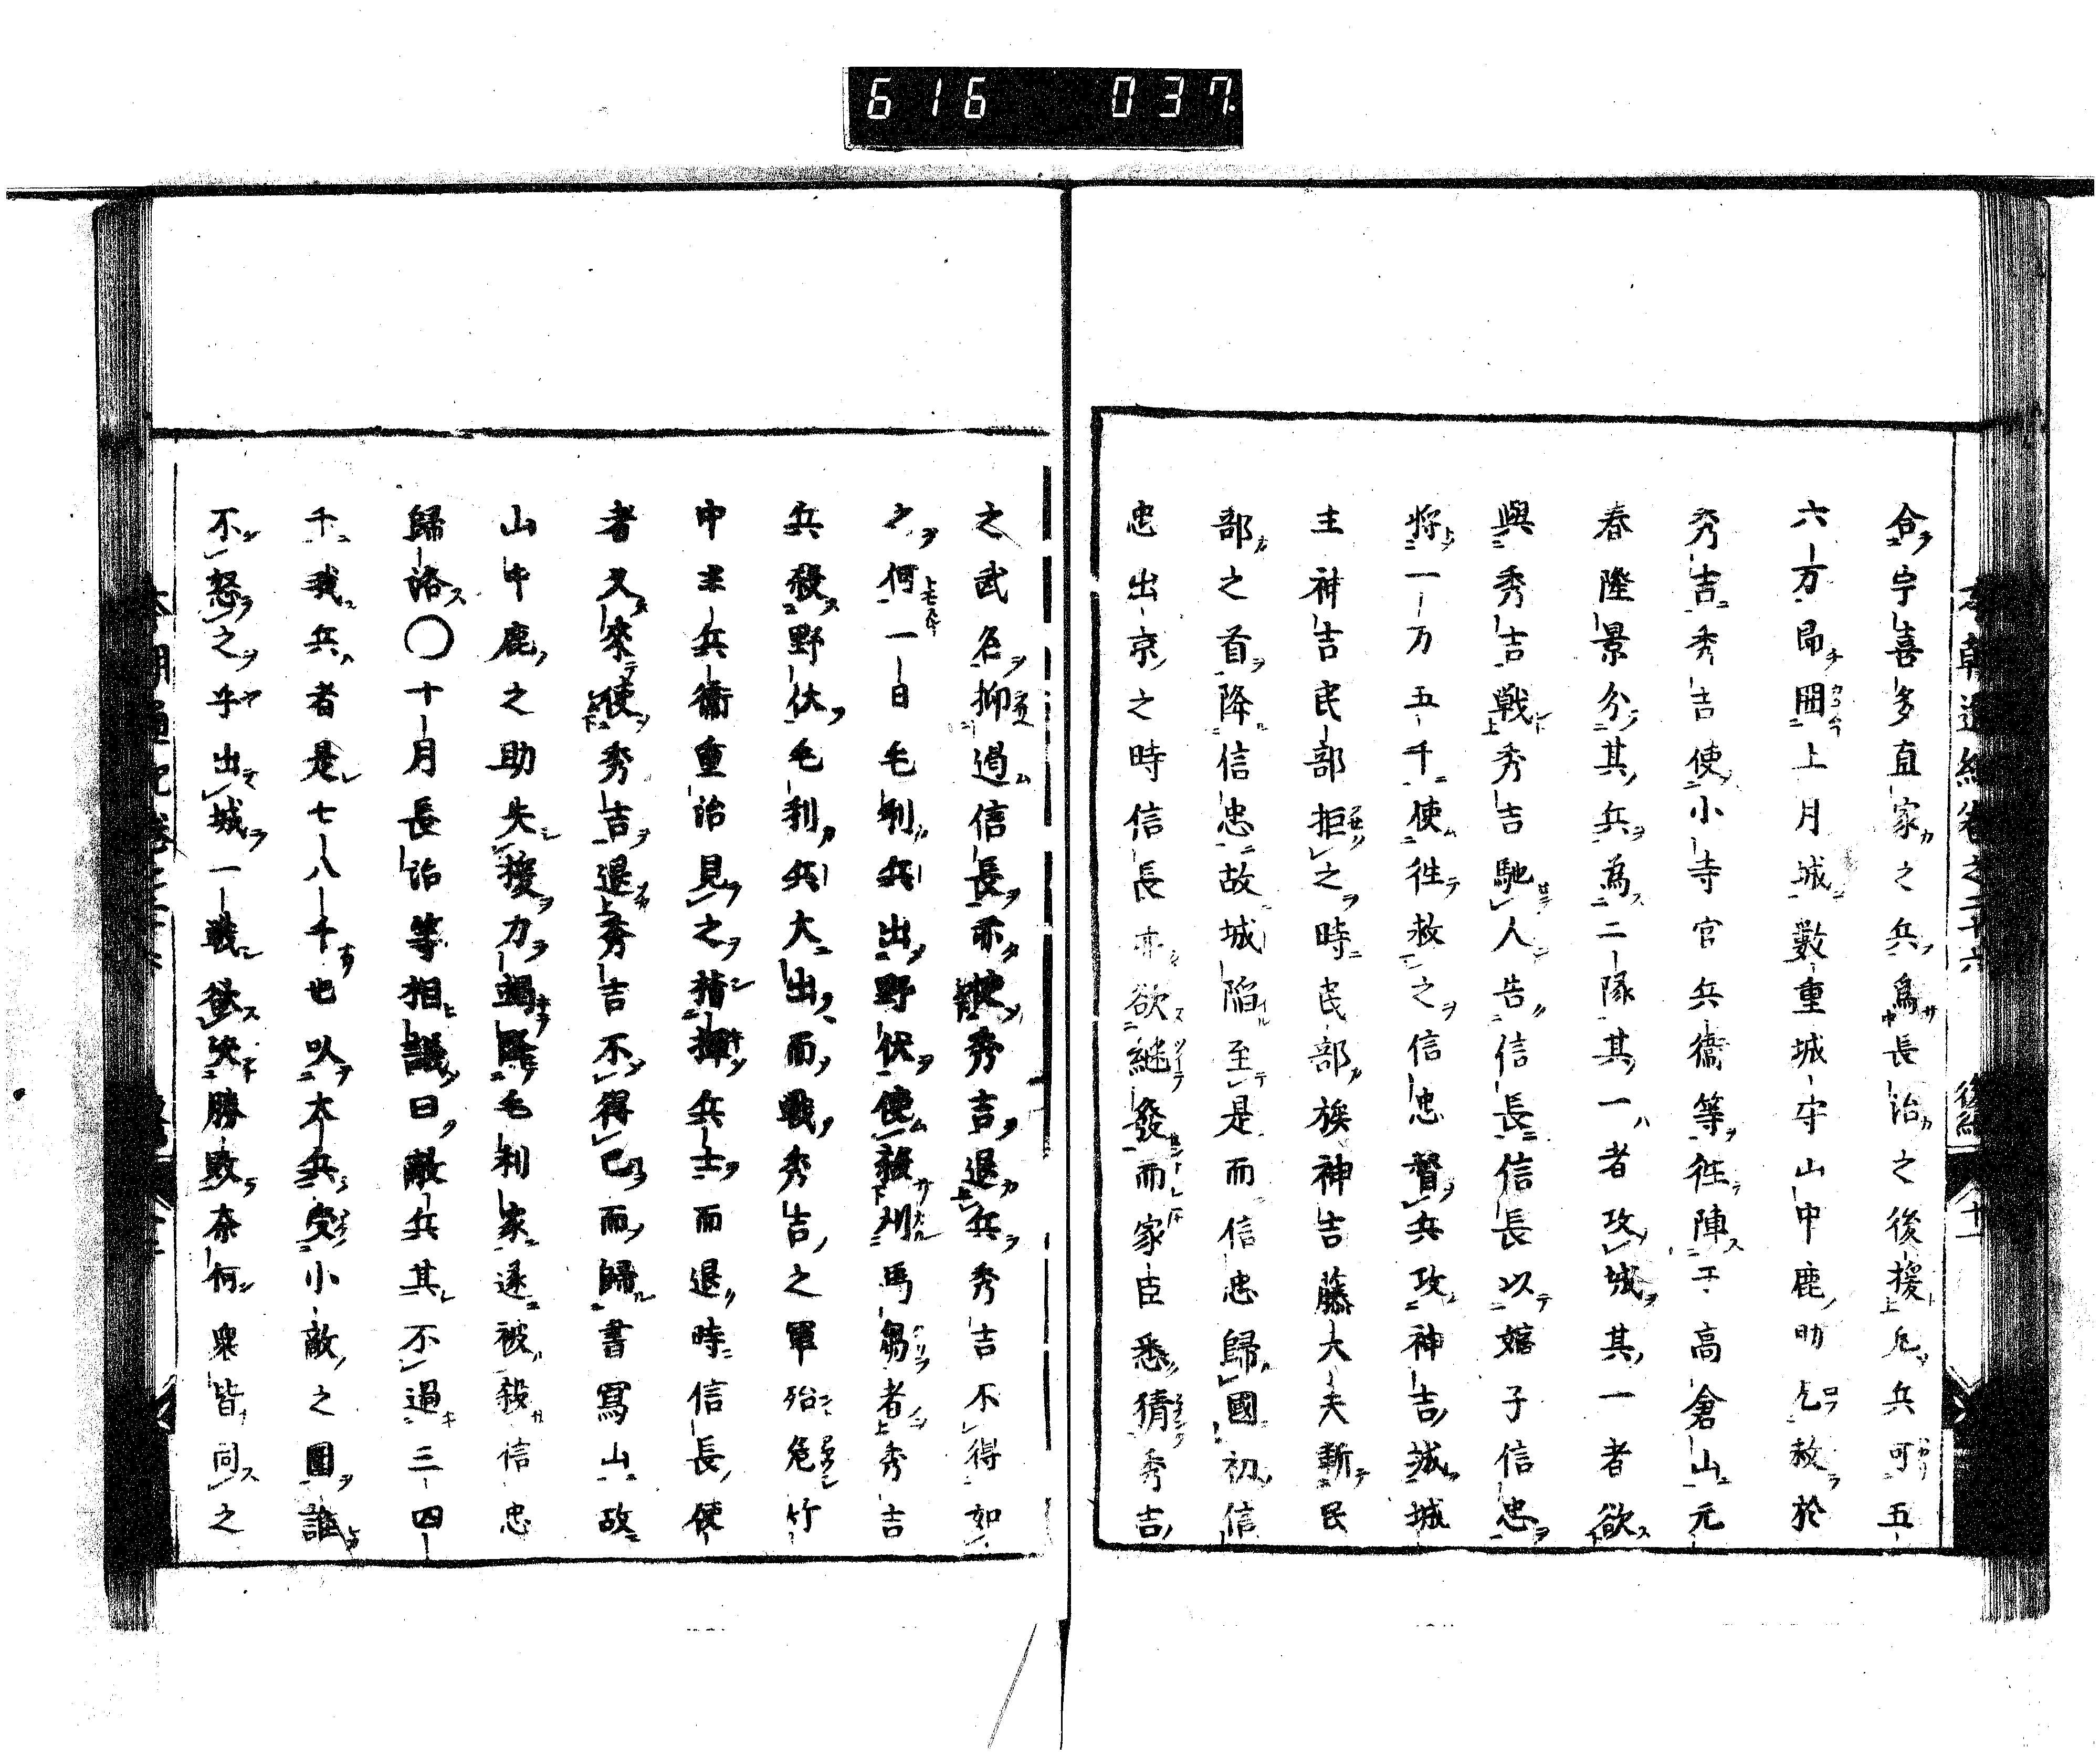 616 037
合宇喜多直家之兵為長治之後援凡兵可五
六万帀囲上月城数重城守山中鹿助乞赦於
秀吉秀吉使小寺官兵衞等徃陣于高倉山元
春隆景分其兵為二隊其一者攻城其一者欲
與秀吉戦秀吉馳人告信長信長以嫡子信忠
将一万五千使徃赦之信忠督兵攻神吉城城
主神吉民部拒之時民部族神吉藤大夫斬民
部之首降信忠故城陥至是而信忠歸國初信
忠出京之時信長亦欲継發而家臣悉猜秀吉
之武名抑過信長亦使秀吉退兵秀吉不得如
之何一日毛利兵出野伏使殺刈馬芻者秀吉
兵殺野伏毛利兵大出而戦秀吉之軍殆危竹
中半兵衞重治見之指揮兵士而退時信長使
者又來使秀吉退秀吉不得已而歸書寫山故
山中鹿之助失援力竭降毛利家遂被殺信忠
歸洛〇十月長治等相議曰敵兵其不過三四
千我兵者是七八千也以大兵受小敵之圍誰
不怒之乎出城一戦欲決勝敗奈何衆皆同之